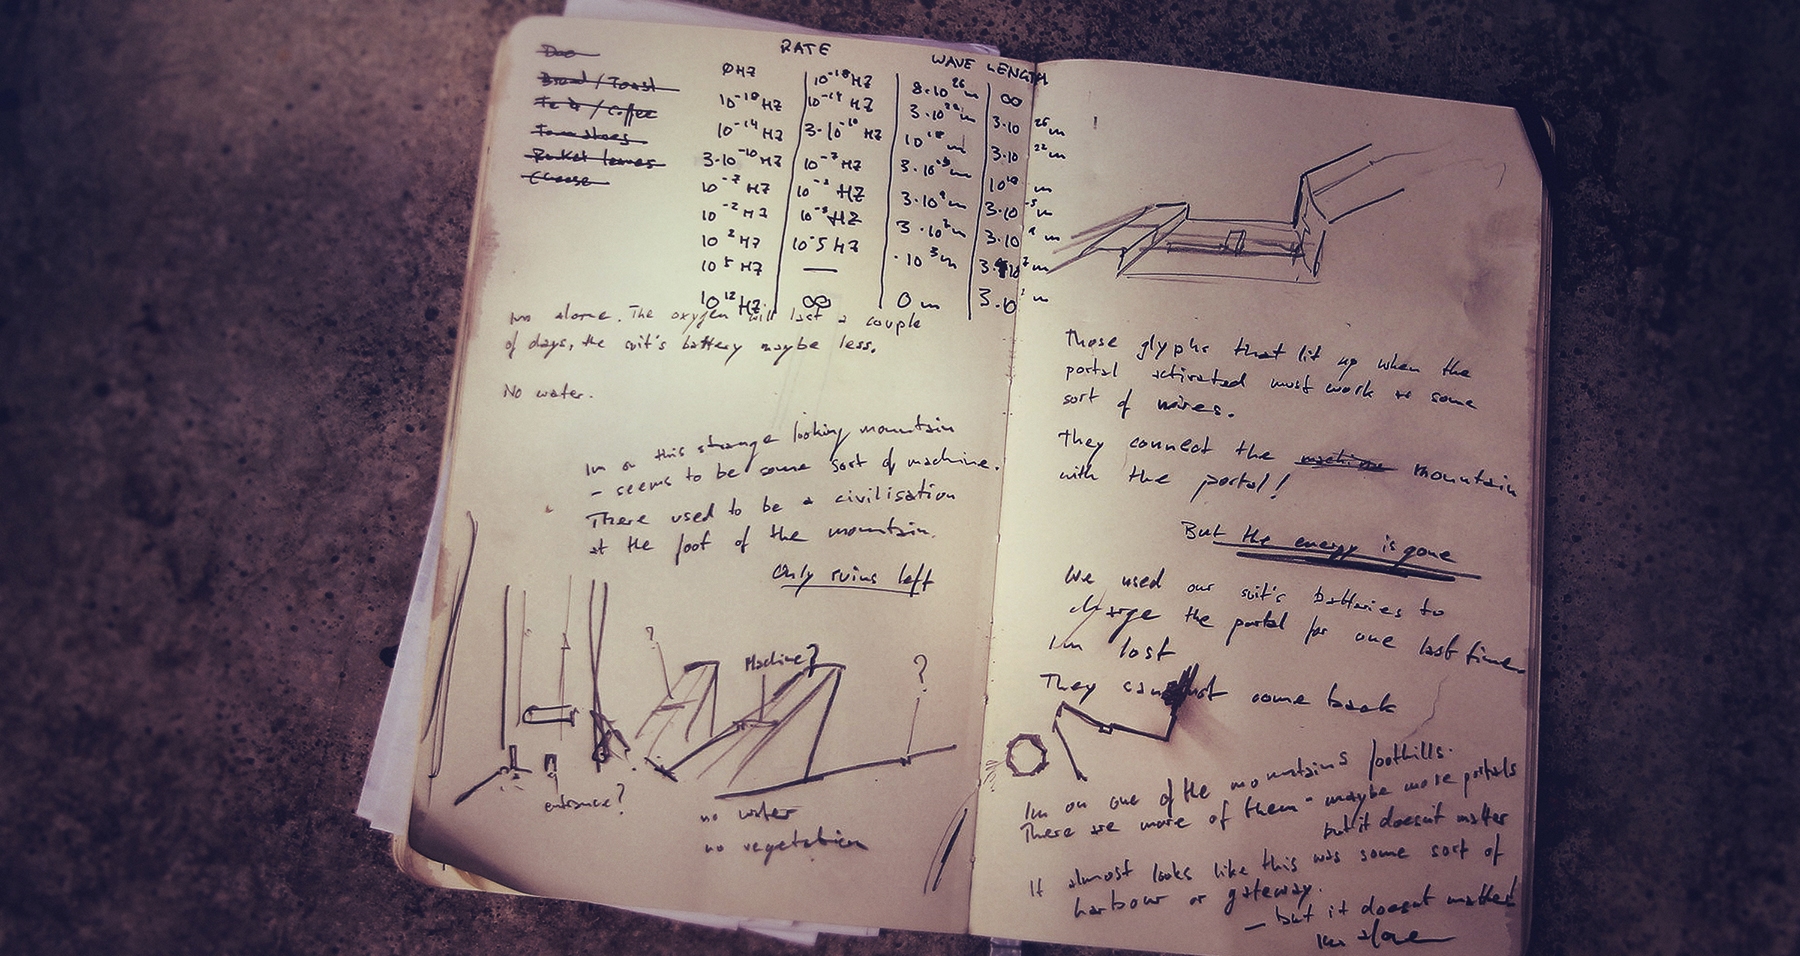 Bread / Toast
Tea / Coffee
Tomatoes
Rocket leaves
Cheese
RATE
WAVE LENGTH
0HZ 10⁻¹⁸HZ 8·10²⁶m ∞
10⁻¹⁸HZ 10⁻¹⁴HZ 3·10²²m 3·10²⁶m
10⁻¹⁴HZ 3·10⁻¹⁰HZ 10¹⁸m 3·10²²m
3·10⁻¹⁰HZ 10⁻⁷HZ 10¹⁸m
10⁻⁷HZ 10⁻²HZ
10⁻²HZ
10²HZ 10⁵HZ
10⁵HZ — ·10³m
10¹²HZ ∞ 0m
Im alone. The oxygen will last a couple
of days, the suit's battery maybe less.
No water.
Im on this strange looking mountain
- seems to be some sort of machine.
There used to be a civilisation
at the foot of the mountain.
Only ruins left
?
Machine?
?
entrance?
no water
no vegetation
Those glyphs that lit up when the
portal activated must work as some
sort of wires.
They connect the machine mountain
with the portal!
But the energy is gone
We used our suit's batteries to
charge the portal for one last time
Im lost
They cannot come back
Im on one of the mountains foothills.
There are more of them - maybe more portals
but it doesnt matter
It almost looks like this was some sort of
harbour or gateway.
- but it doesnt matter
Im alone